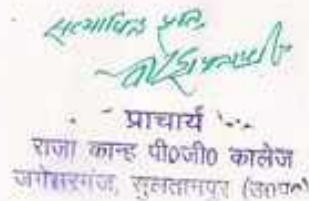 सत्यापित प्रति
प्राचार्य
राजा कान्ह पी०जी० कालेज
जगेसरगंज, सुलतानपुर (उ०प्र०)